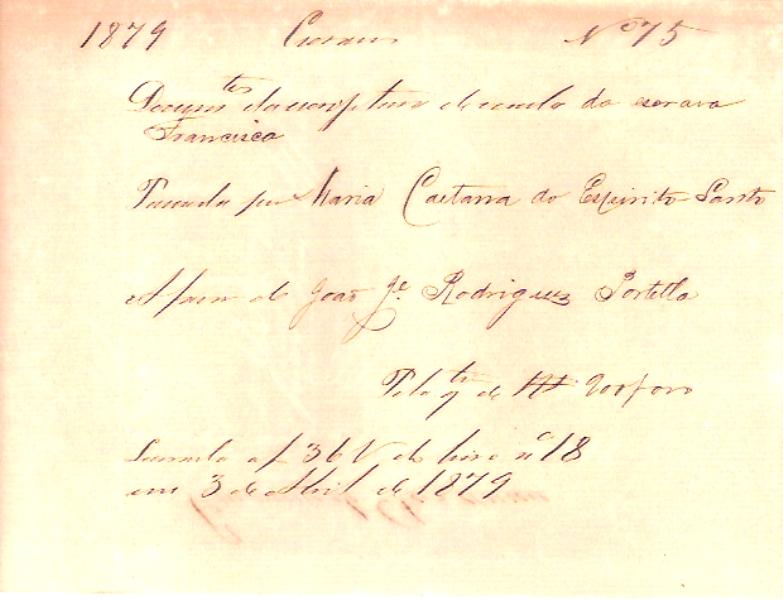 1879 Nº 75
Docum.tos da escriptura de venda da escrava
Francisca
Passada por Maria Caetana do Espirito Santo
A favor de João Je. Rodriguez Portella
Pela q.tia de
Lavrada a f 36 V do livro nº 18
em 3 de Abril de 1879